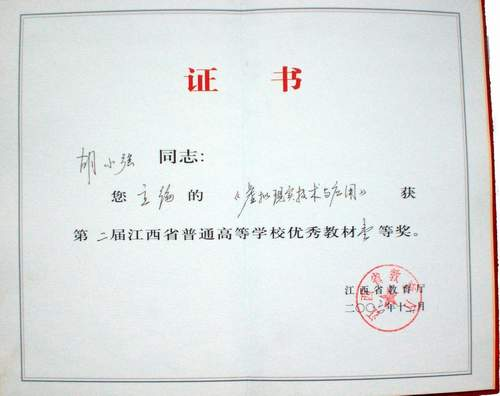 证 书
胡小强 同志:
您 主编 的 《虚拟现实技术与应用》 获
第二届江西省普通高等学校优秀教材壹等奖。
江西省教育厅
二〇〇 年十 月